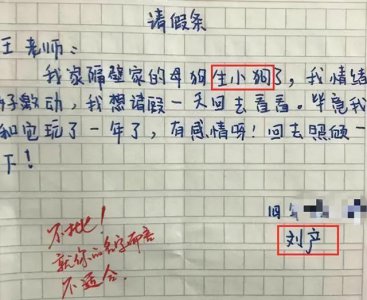 请假条
王老师：
我家隔壁家的母狗生小狗了，我情绪
好激动，我想请假一天回去看看。毕竟我
和它玩了一年了，有感情呀！回去照顾一
下！
刘产
不批！
就你的名字而言
不适合。